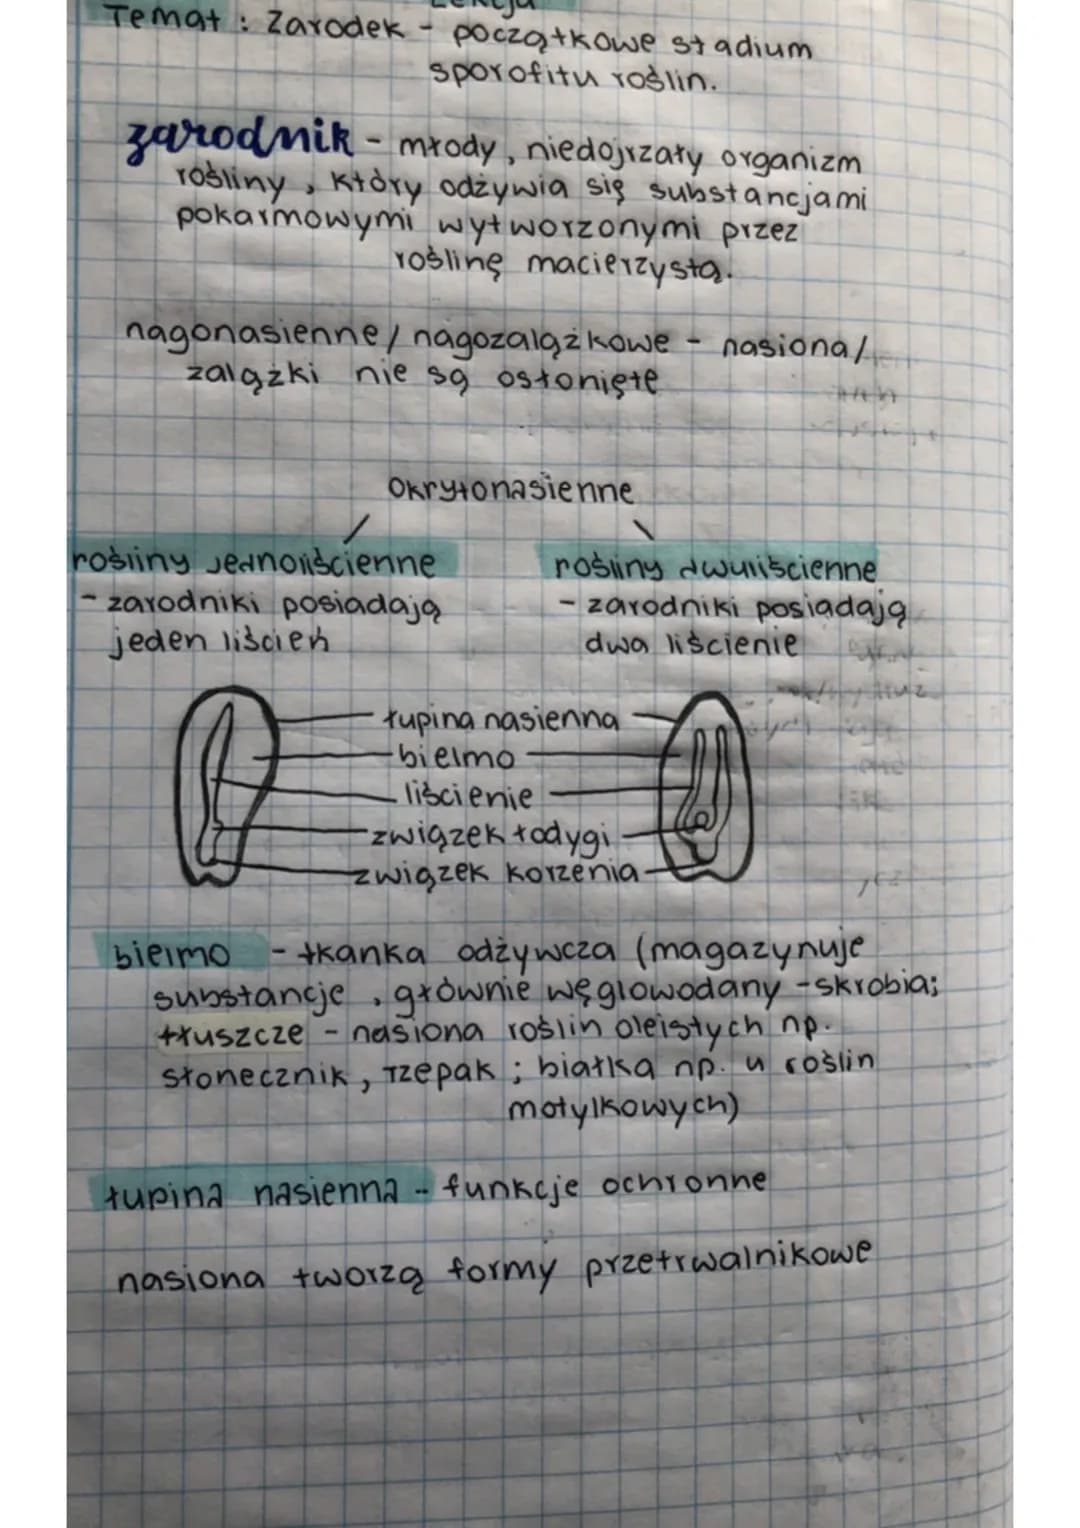 Lekcja
Temat : Zarodek - początkowe stadium
sporofitu roślin.
zarodnik - młody, niedojrzały organizm
rośliny, który odżywia się substancjami
pokarmowymi wytworzonymi przez
roślinę macierzystą.
nagonasienne/ nagozalążkowe - nasiona/
zalążki nie są osłonięte
okrytonasienne
rośliny jednoliścienne
- zarodniki posiadają
jeden liścień
rośliny dwuliścienne
- zarodniki posiadają
dwa liścienie
łupina nasienna
bielmo
liścienie
związek łodygi
związek korzenia
bielmo - tkanka odżywcza (magazynuje
substancje, głównie węglowodany - skrobia;
tłuszcze - nasiona roślin oleistych np.
słonecznik, rzepak ; białka np. u roślin
motylkowych)
łupina nasienna - funkcje ochronne
nasiona tworzą formy przetrwalnikowe